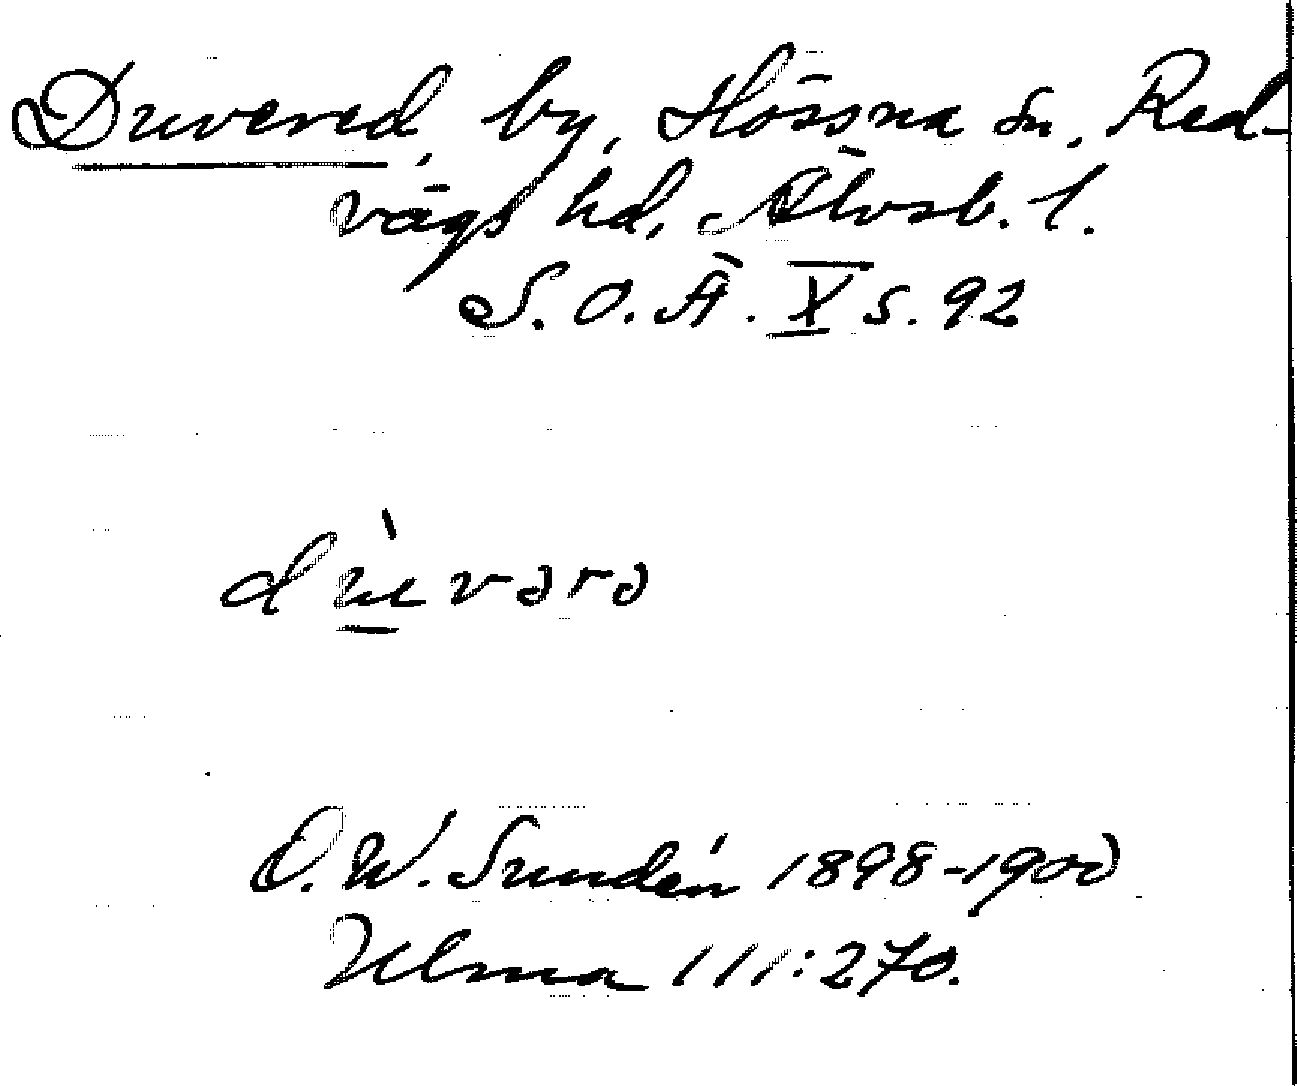 Duvered, by, Hössna sn, Red-
vägs hd, Älvsb. l.
S. O. Ä. X s. 92
dùvərə
D. W. Sundén 1898-1900
Ulma 111:270.